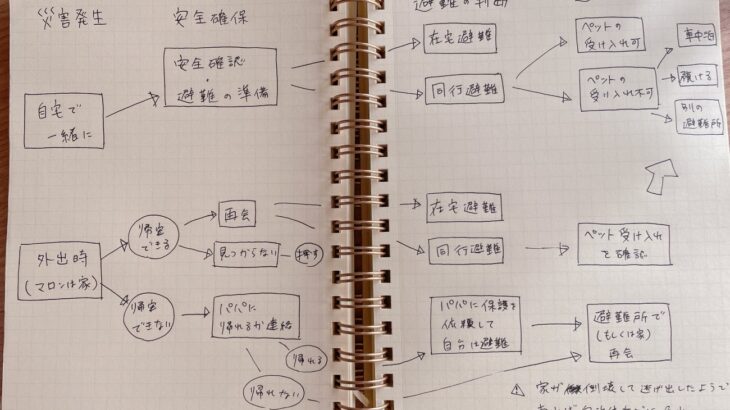 災害発生
安全確保
避難の判断
安全確認
・
避難の準備
自宅で
一緒に
在宅避難
同行避難
ペットの
受け入れ可
ペットの
受け入れ不可
車中泊
預ける
別の
避難所
外出時
(マロンは家)
帰宅
できる
再会
見つからない
探す
帰宅
できない
パパに
帰れるか連絡
帰れる
帰れない
在宅避難
同行避難
ペット受け入れ
を確認
パパに保護を
依頼して
自分は避難
避難所で
(もしくは家)
再会
⚠ 家が倒壊して逃げ出したようで